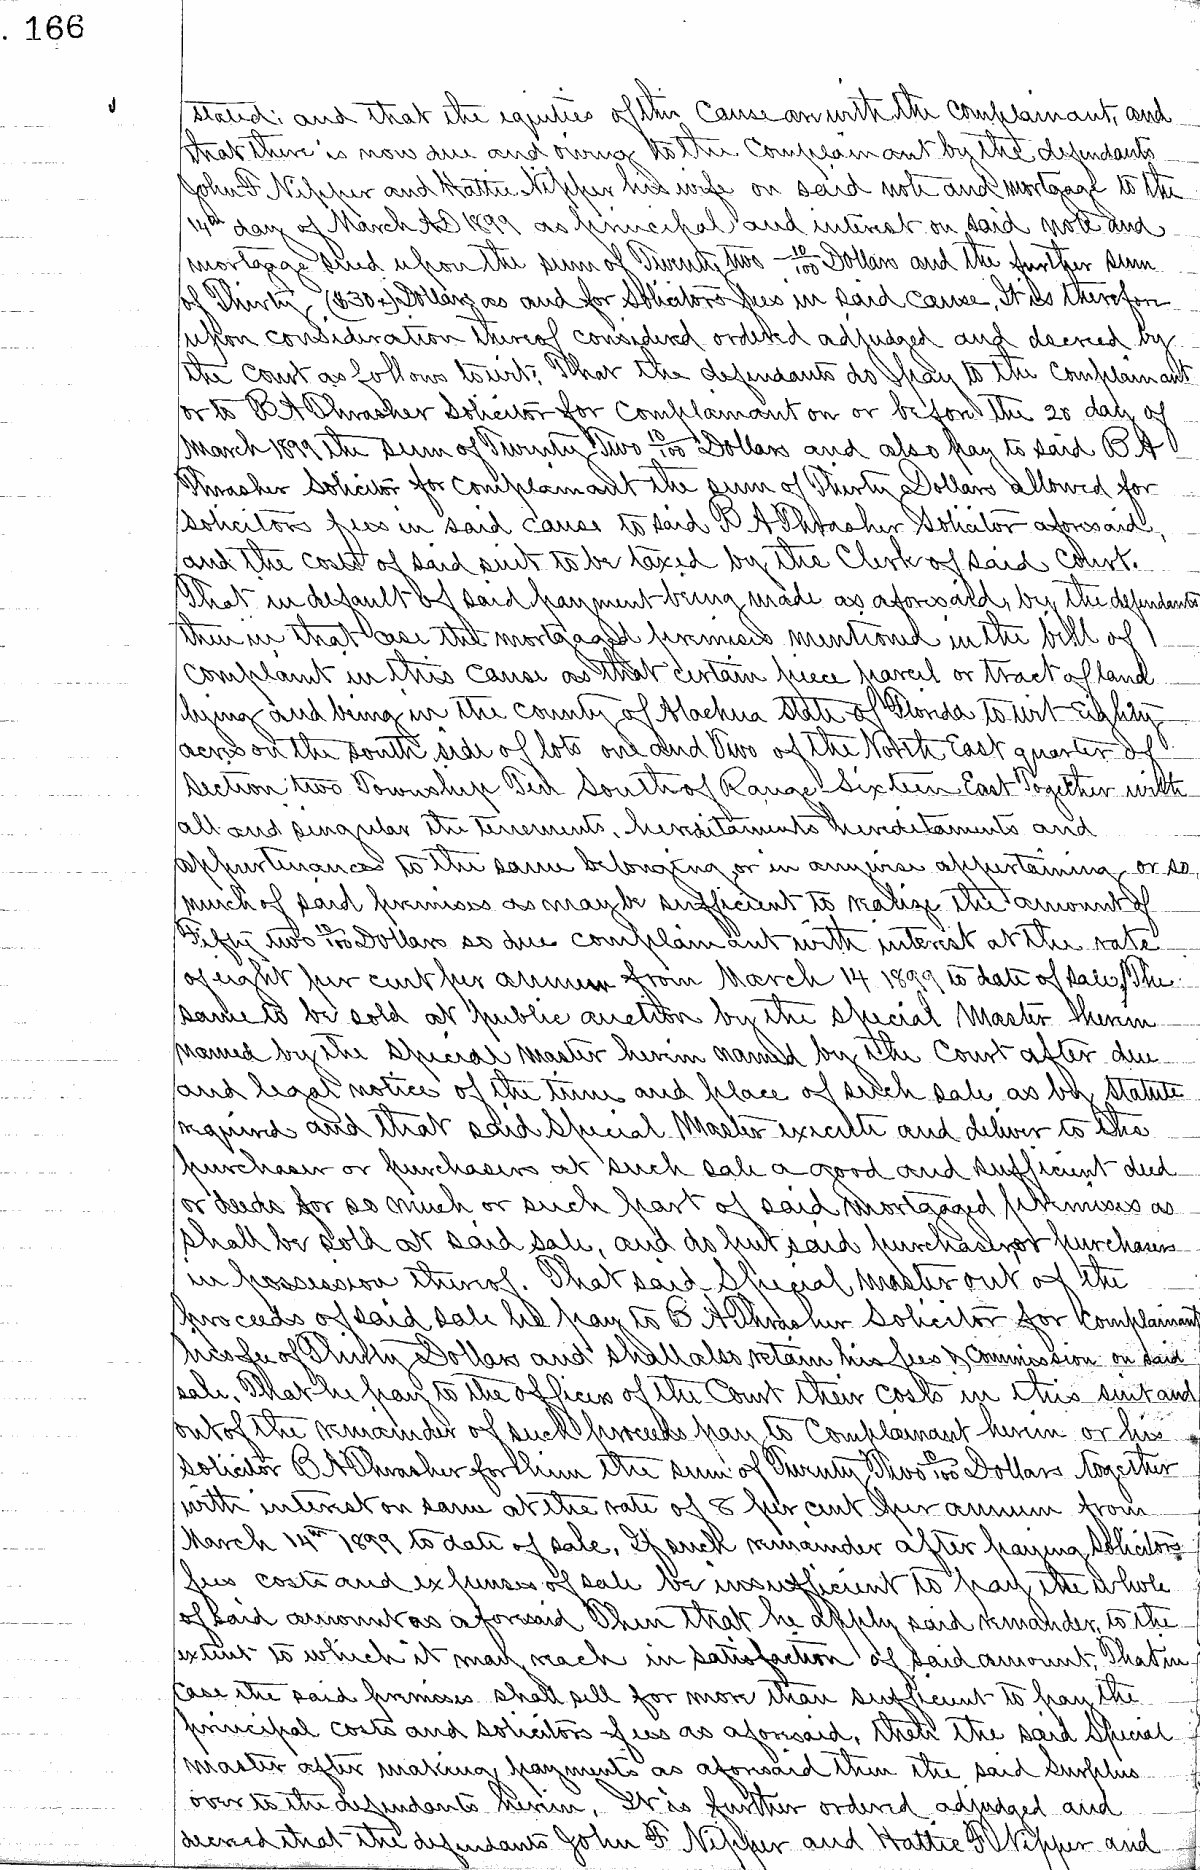 166
stated; and that the equities of this Cause are with the Complainant, and
that there is now due and owing to the Complainant by the defendants
John F Nipper and Hattie Nipper his wife on said note and mortgage to the
14th day of March AD 1899 as principal and interest on said note and
mortgage sued upon the sum of Twenty two 10/100 Dollars and the further sum
of Thirty ($30) Dollars as and for Solicitors fees in said cause, It is therefore
upon consideration thereof considerd ordered adjudged and decreed by
the Court as follows towit: That the defendants do pay to the Complainant
or to B A Thrasher Solicitor for Complainant on or before the 20 day of
March 1899 the sum of Twenty Two 10/100 Dollars and also pay to said B A
Thrasher Solicitor for Complainant the sum of Thirty Dollars allowed for
solicitors fees in said cause to said B A Thrasher Solicitor aforesaid,
and the costs of said suit to be taxed by the Clerk of said Court.
That in default of said payment being made as aforesaid, by the defendants
then in that case the mortgaged premises mentioned in the bill of
complaint in this cause as that certain piece parcel or tract of land
lying and being in the county of Alachua State of Florida to wit Eighty
acres on the south side of lots one and Two of the North East quarter of
Section two Township Ten South of Range Sixteen East Together with
all and singular the tenements, hereditaments hereditaments and
appurtenances to the same belonging or in anywise appertaining, or so
much of said premises as may be sufficient to realize the amount of
Fifty two 10/100 Dollars so due complainant with interest at the rate
of eight per cent per annum from March 14 1899 to date of sale, The
same to be sold at public auction by the special Master therein
named by the Special master herein named by the Court after due
and legal notice of the time and place of such sale as by statute
required and that said Special Master execute and deliver to the
purchaser or purchasers at such sale a good and sufficient deed
or deeds for so much or such part of said mortgaged premises as
shall be sold at said sale, and do put said purchaser or purchasers
in possession thereof. That said Special master out of the
proceeds of said sale he pay to B A Thrasher Solicitor for Complainant
his fee of Thirty Dollars and shall also retain his fees & Commission on said
sale. That he pay to the officers of the Court their costs in this suit and
out of the remainder of such proceeds pay to Complainant herein or his
solicitor B A Thrasher for him the sum of Twenty Two 10/100 Dollars together
with interest on same at the rate of 8 per cent per annum from
March 14th 1899 to date of sale. If such remainder after paying Solicitors
fees costs and expenses of sale be insufficient to pay the whole
of said amount as aforesaid Then that he apply said remander, to the
extent to which it may reach in satisfaction of said amount. That in
case the said premises shall sell for more than sufficient to pay the
principal costs and solicitors fees as aforesaid, then the said Special
master after making payments as aforesaid then the said Surplus
over to the defendants herein. It is further ordered adjudged and
decreed that the defendants John F Nipper and Hattie F Nipper and